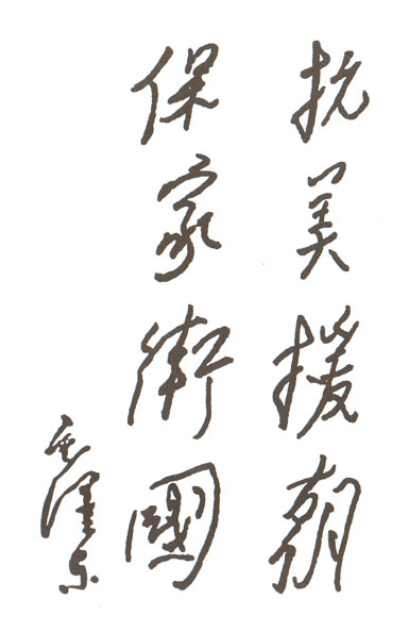 抗美援朝
保家衛國
毛澤东